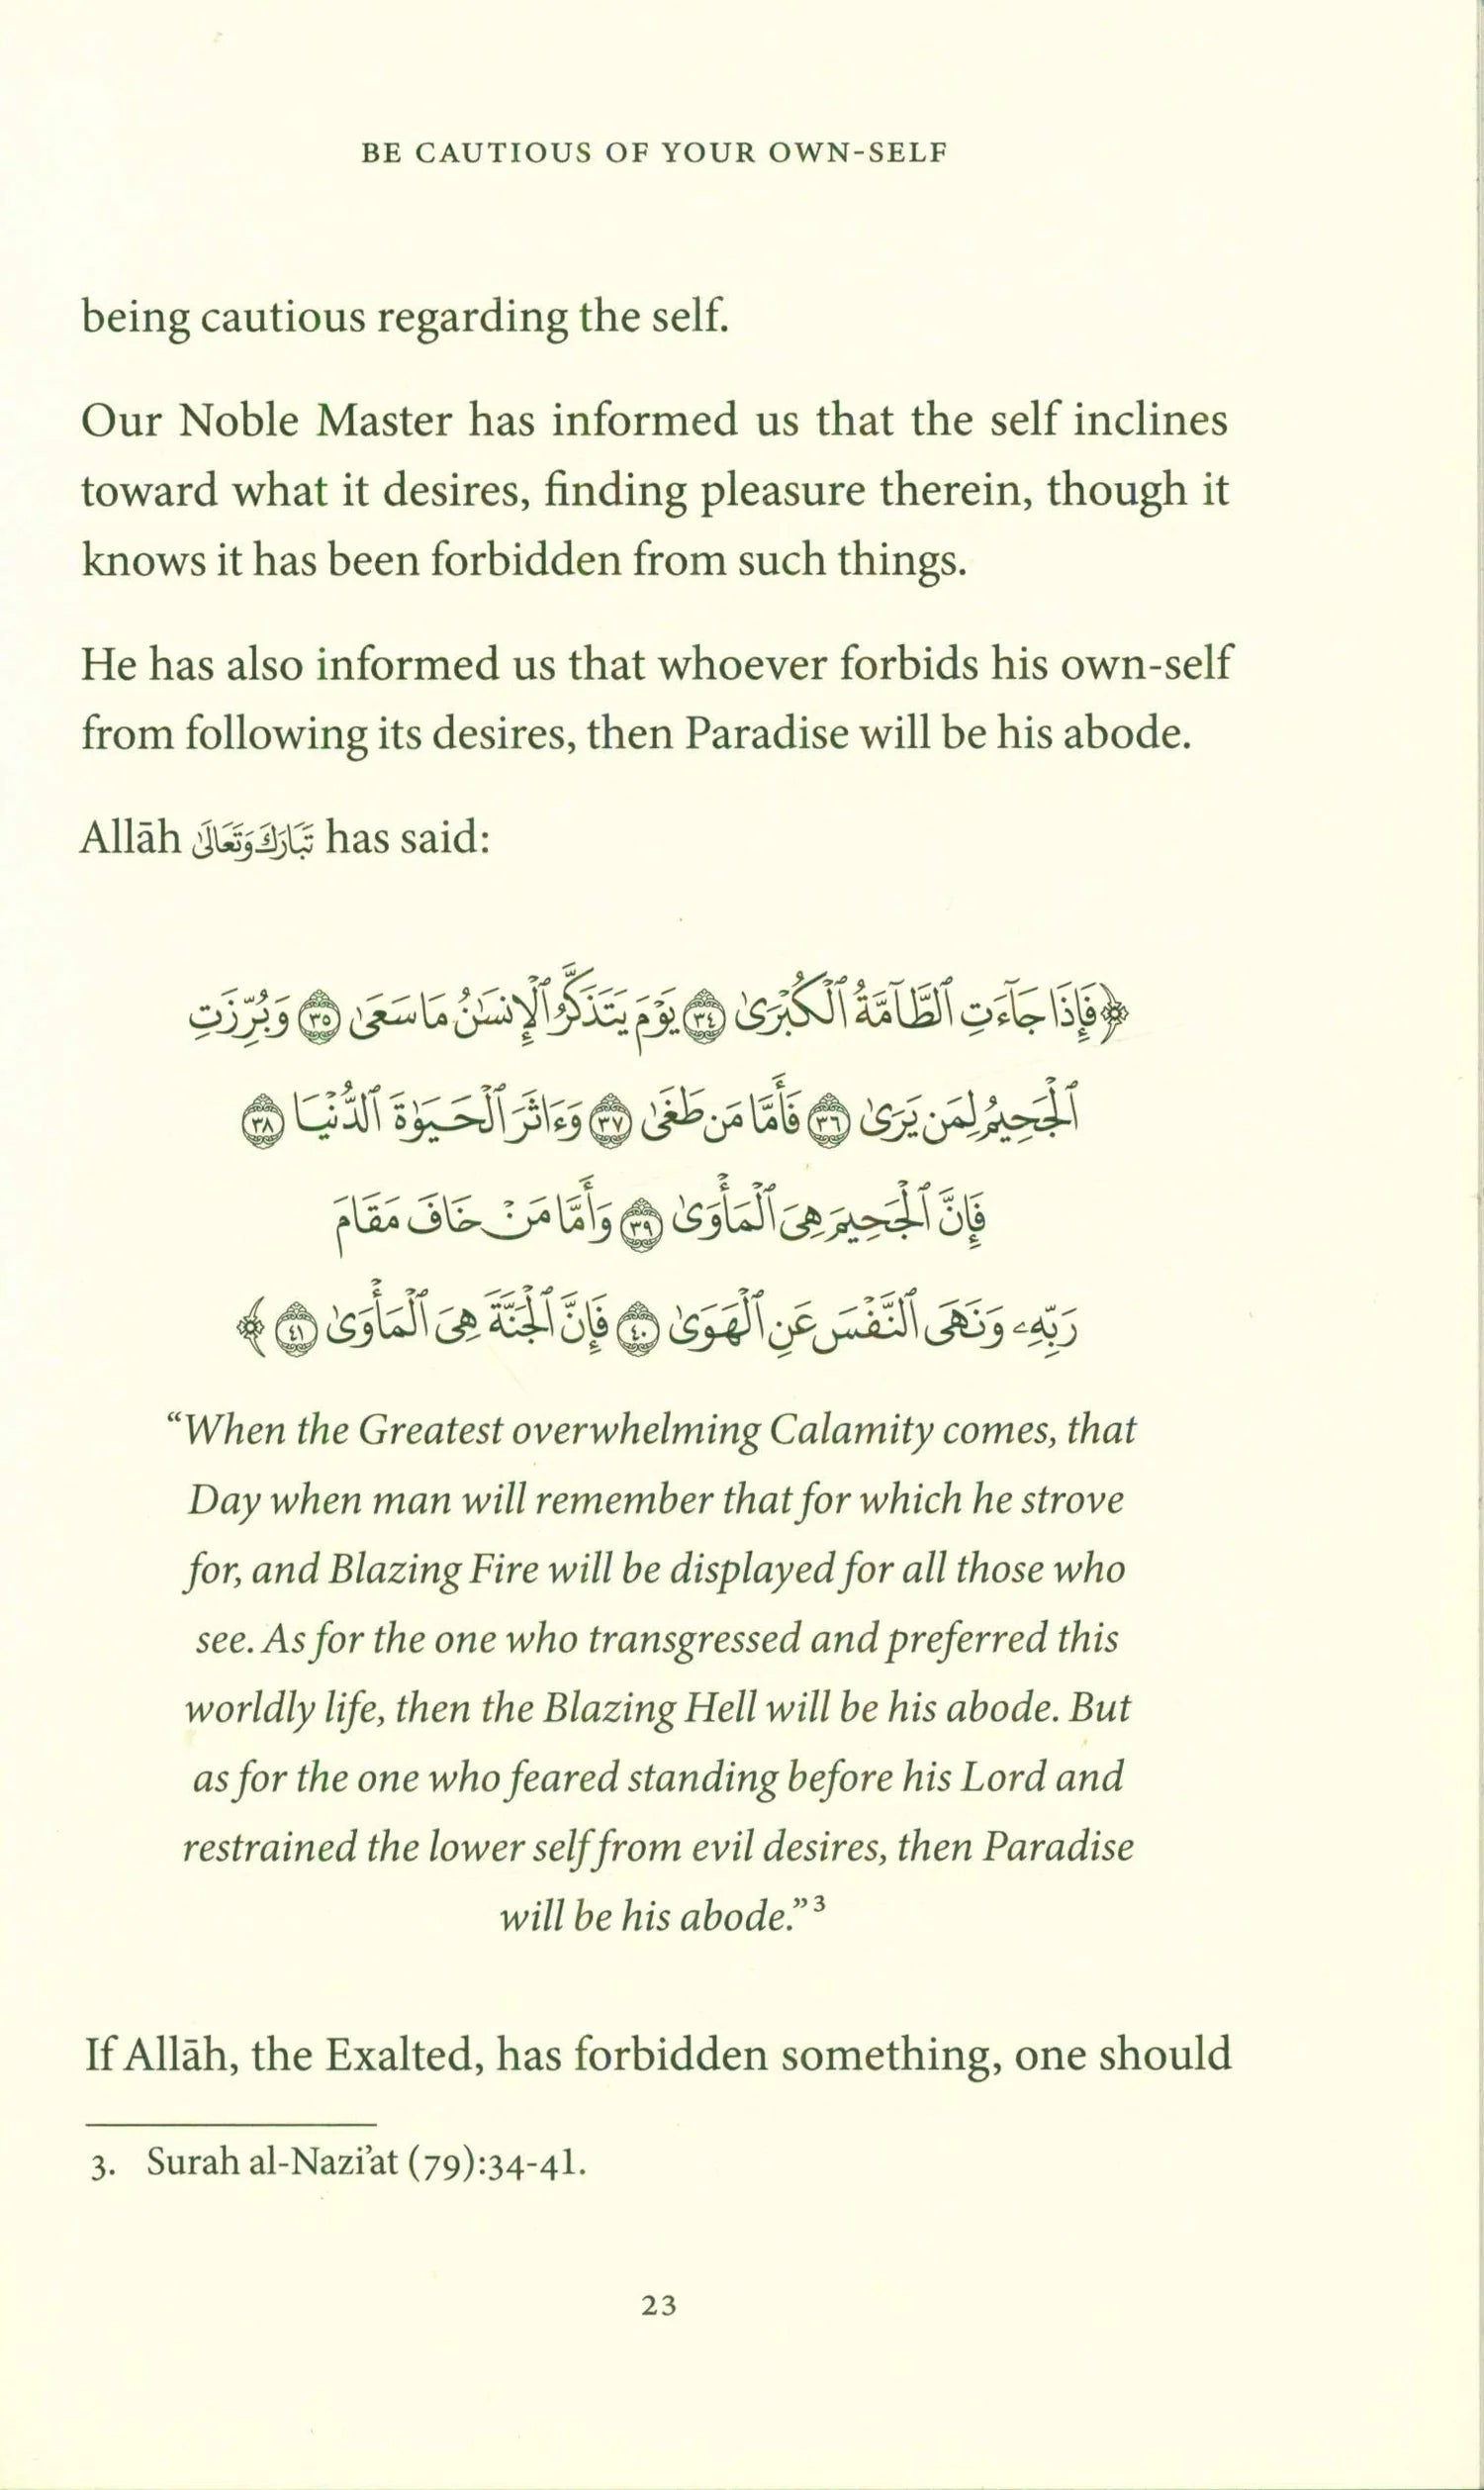 BE CAUTIOUS OF YOUR OWN-SELF
being cautious regarding the self.
Our Noble Master has informed us that the self inclines
toward what it desires, finding pleasure therein, though it
knows it has been forbidden from such things.
He has also informed us that whoever forbids his own-self
from following its desires, then Paradise will be his abode.
Allāh تَبَارَكَ وَتَعَالَىٰ has said:
﴿فَإِذَا جَآءَتِ ٱلطَّآمَّةُ ٱلْكُبْرَىٰ ٣٤ يَوْمَ يَتَذَكَّرُ ٱلْإِنسَـٰنُ مَا سَعَىٰ ٣٥ وَبُرِّزَتِ
ٱلْجَحِيمُ لِمَن يَرَىٰ ٣٦ فَأَمَّا مَن طَغَىٰ ٣٧ وَءَاثَرَ ٱلْحَيَوٰةَ ٱلدُّنْيَا ٣٨
فَإِنَّ ٱلْجَحِيمَ هِىَ ٱلْمَأْوَىٰ ٣٩ وَأَمَّا مَنْ خَافَ مَقَامَ
رَبِّهِۦ وَنَهَى ٱلنَّفْسَ عَنِ ٱلْهَوَىٰ ٤٠ فَإِنَّ ٱلْجَنَّةَ هِىَ ٱلْمَأْوَىٰ ٤١ ﴾
“When the Greatest overwhelming Calamity comes, that
Day when man will remember that for which he strove
for, and Blazing Fire will be displayed for all those who
see. As for the one who transgressed and preferred this
worldly life, then the Blazing Hell will be his abode. But
as for the one who feared standing before his Lord and
restrained the lower self from evil desires, then Paradise
will be his abode.”3
If Allāh, the Exalted, has forbidden something, one should
3. Surah al-Nazi’at (79):34-41.
23